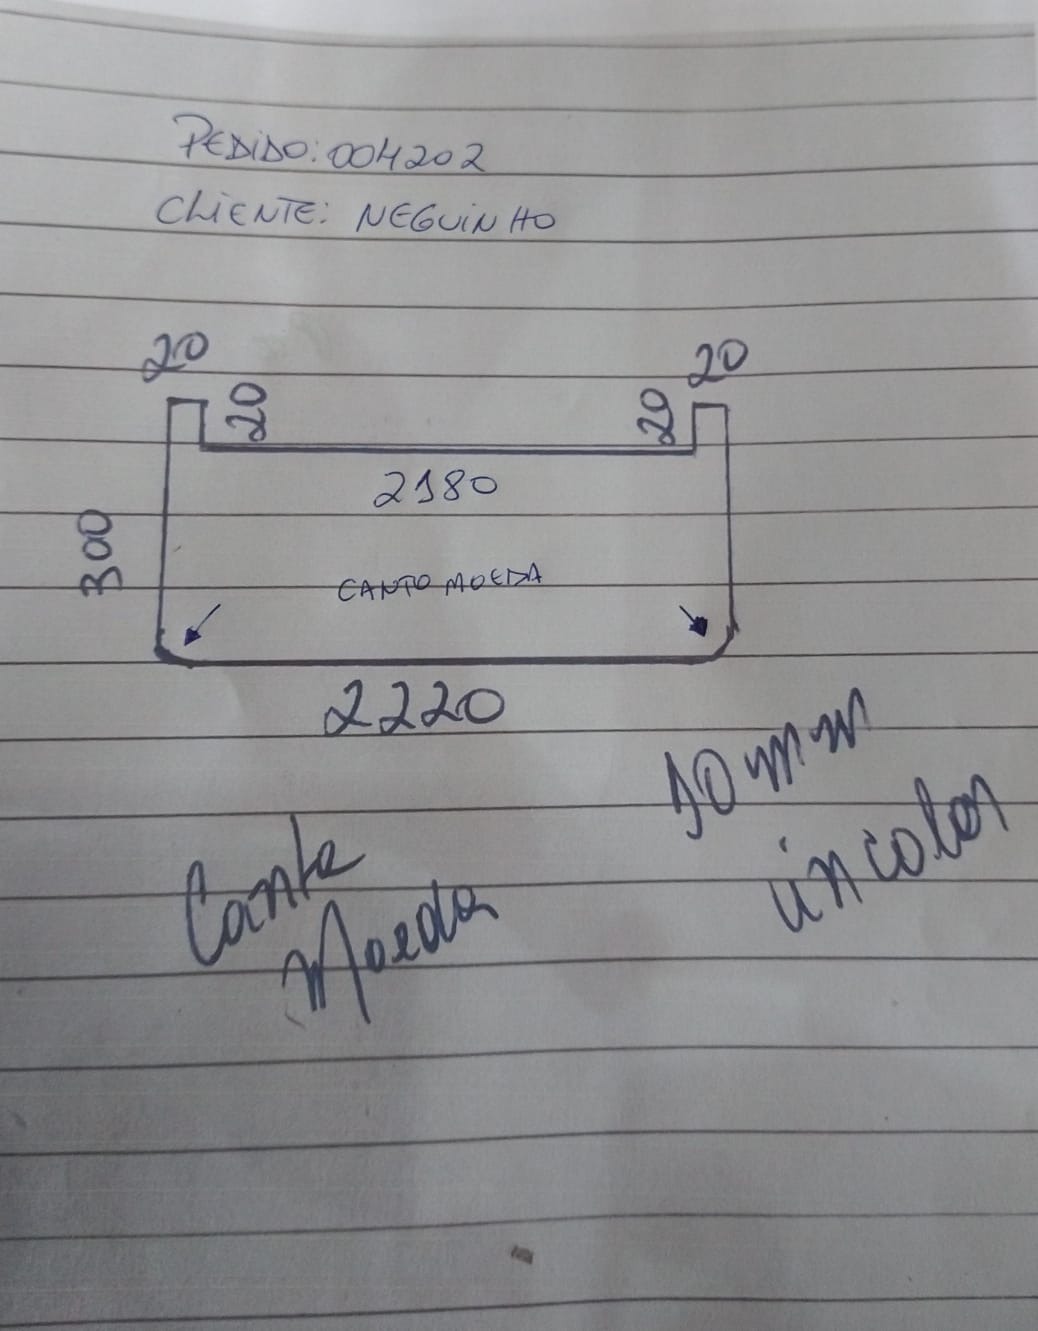 PEDiDO: 004202
CLiENTE: NEGUiNHO
20
20
20
20
2180
300
CANTO MOEDA
2220
10 mm
incolor
Canto
Moeda